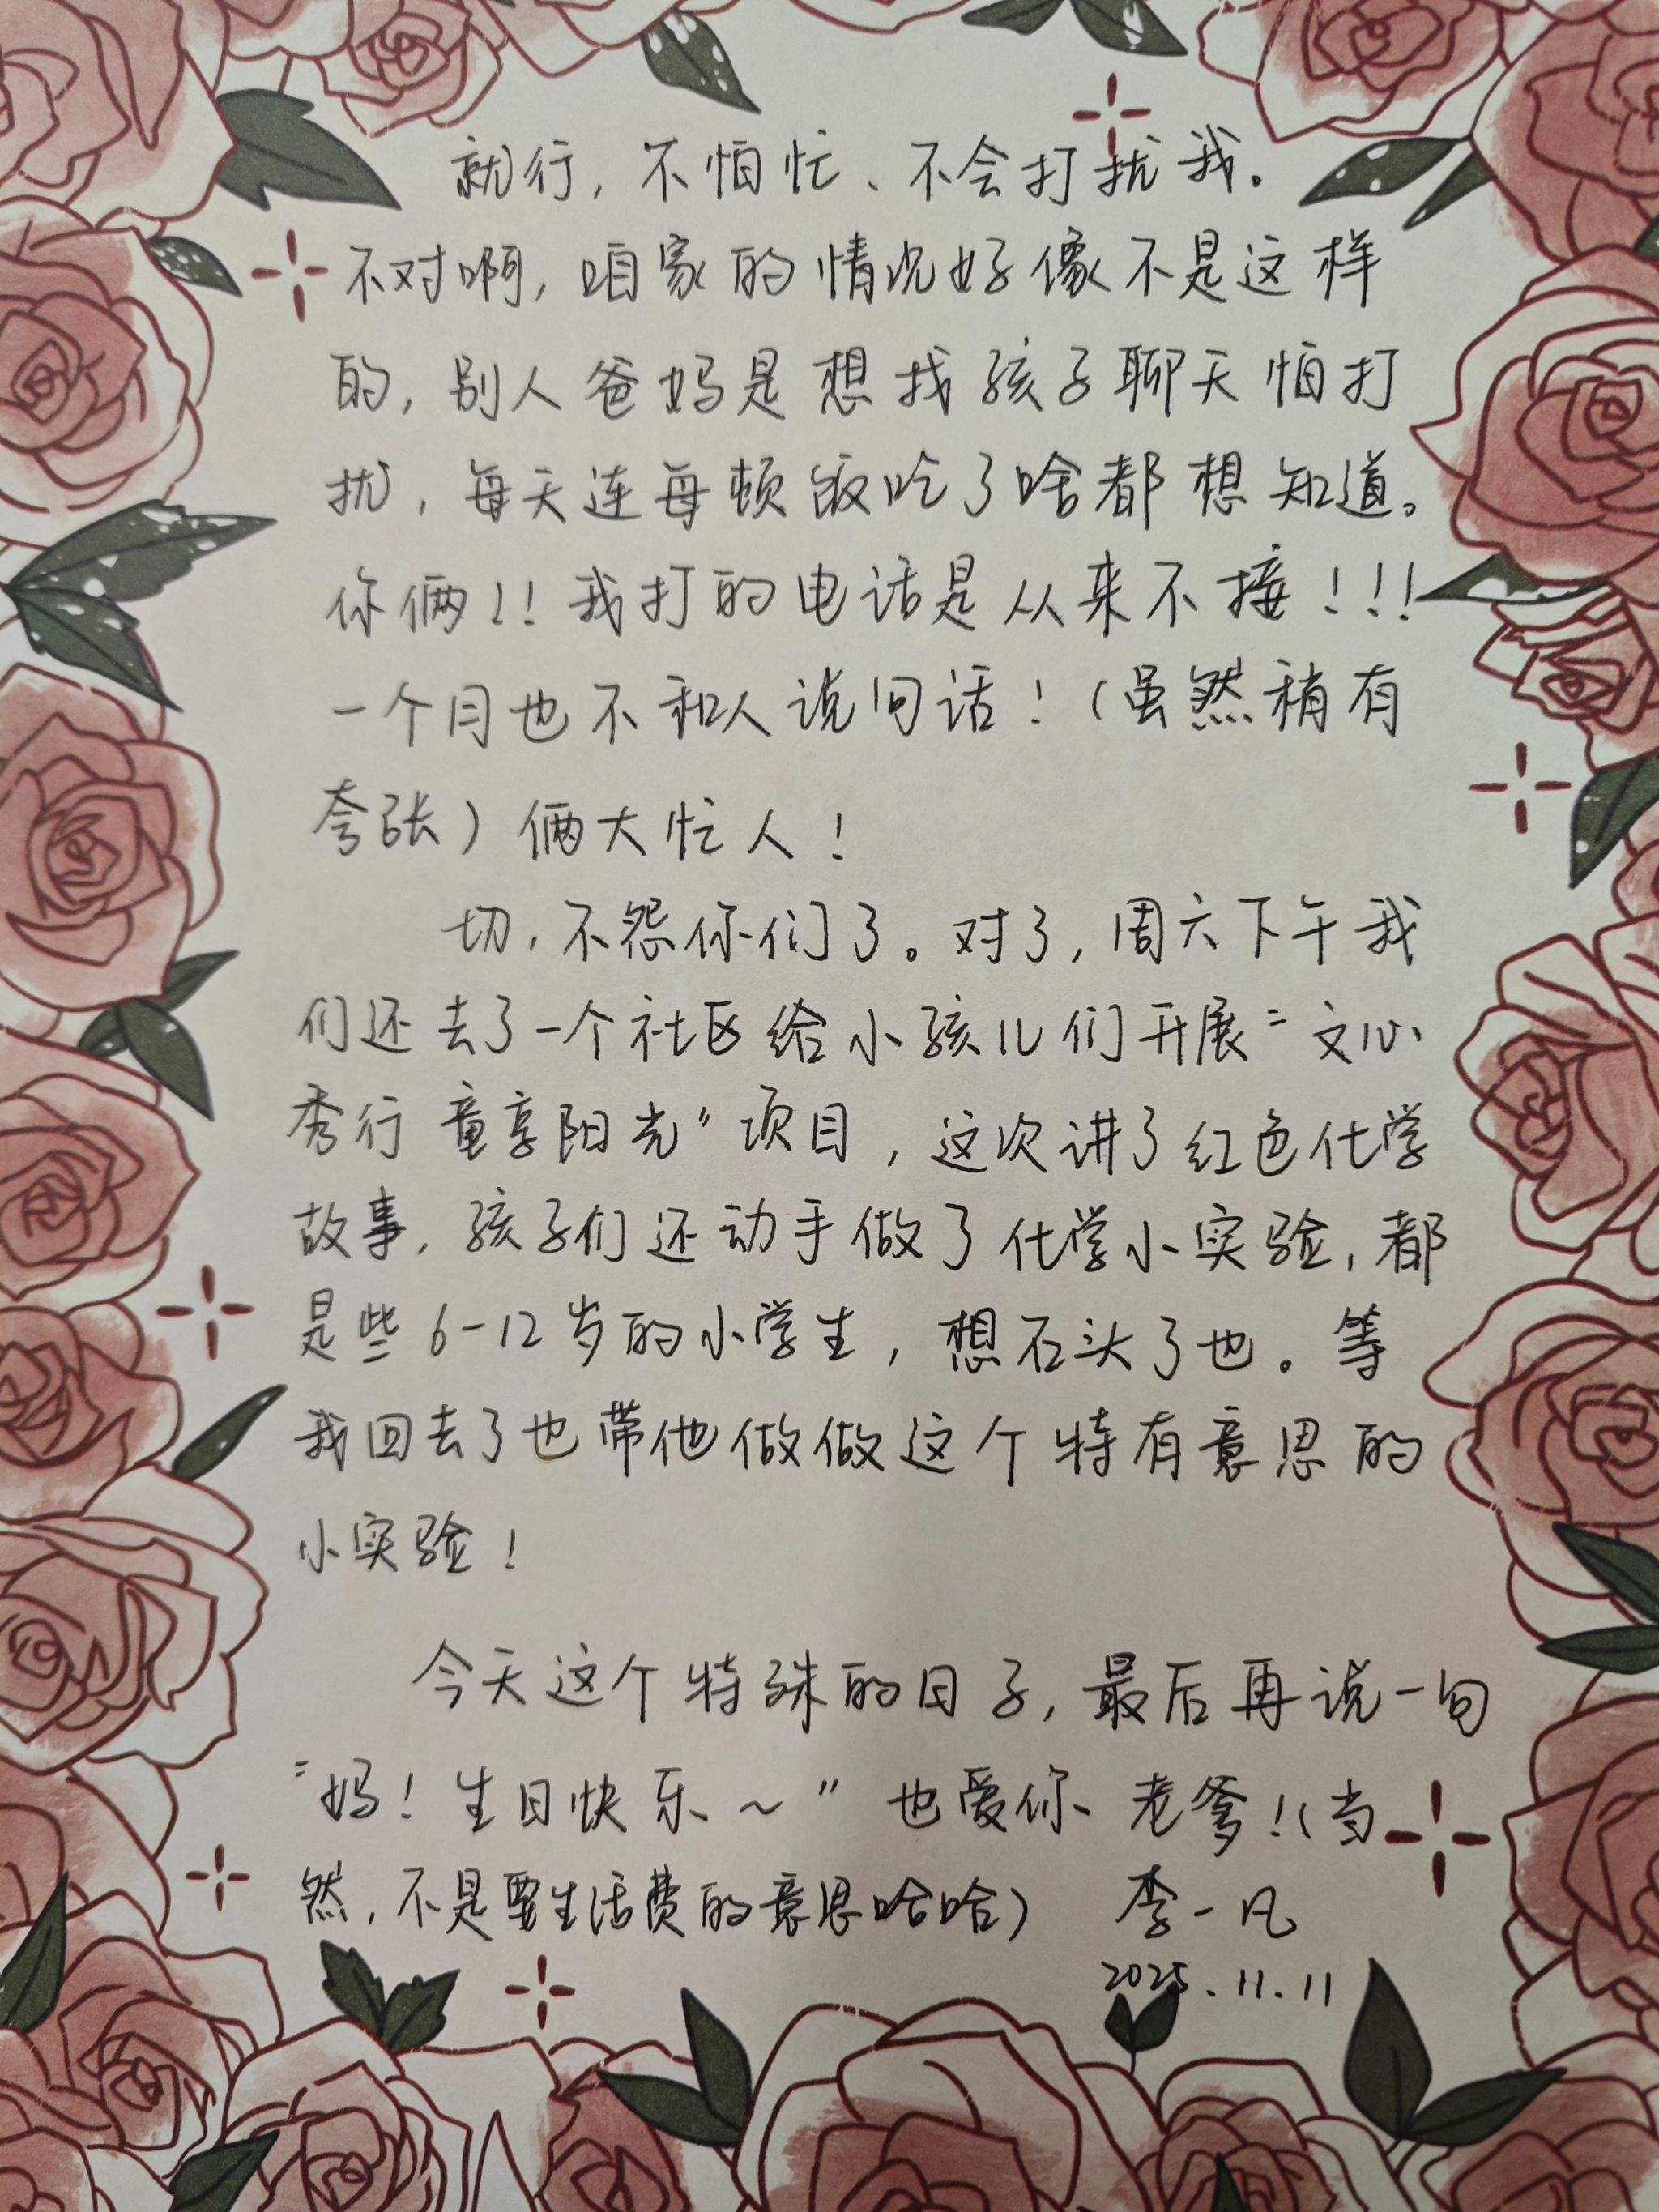 就行，不怕忙、不会打扰我。
不对啊，咱家的情况好像不是这样
的，别人爸妈是想找孩子聊天怕打
扰，每天连每顿饭吃了啥都想知道。
你俩！！我打的电话是从来不接！！！
一个月也不和人说句话！（虽然稍有
夸张）俩大忙人！
切，不怨你们了。对了，周六下午我
们还去了一个社区给小孩儿们开展“文心
秀行 童享阳光”项目，这次讲了红色化学
故事，孩子们还动手做了化学小实验，都
是些6-12岁的小学生，想石头了也。等
我回去了也带他做做这个特有意思的
小实验！
今天这个特殊的日子，最后再说一句
“妈！生日快乐～”也爱你 老爹！（当
然，不是要生活费的意思哈哈） 李一凡
2025.11.11